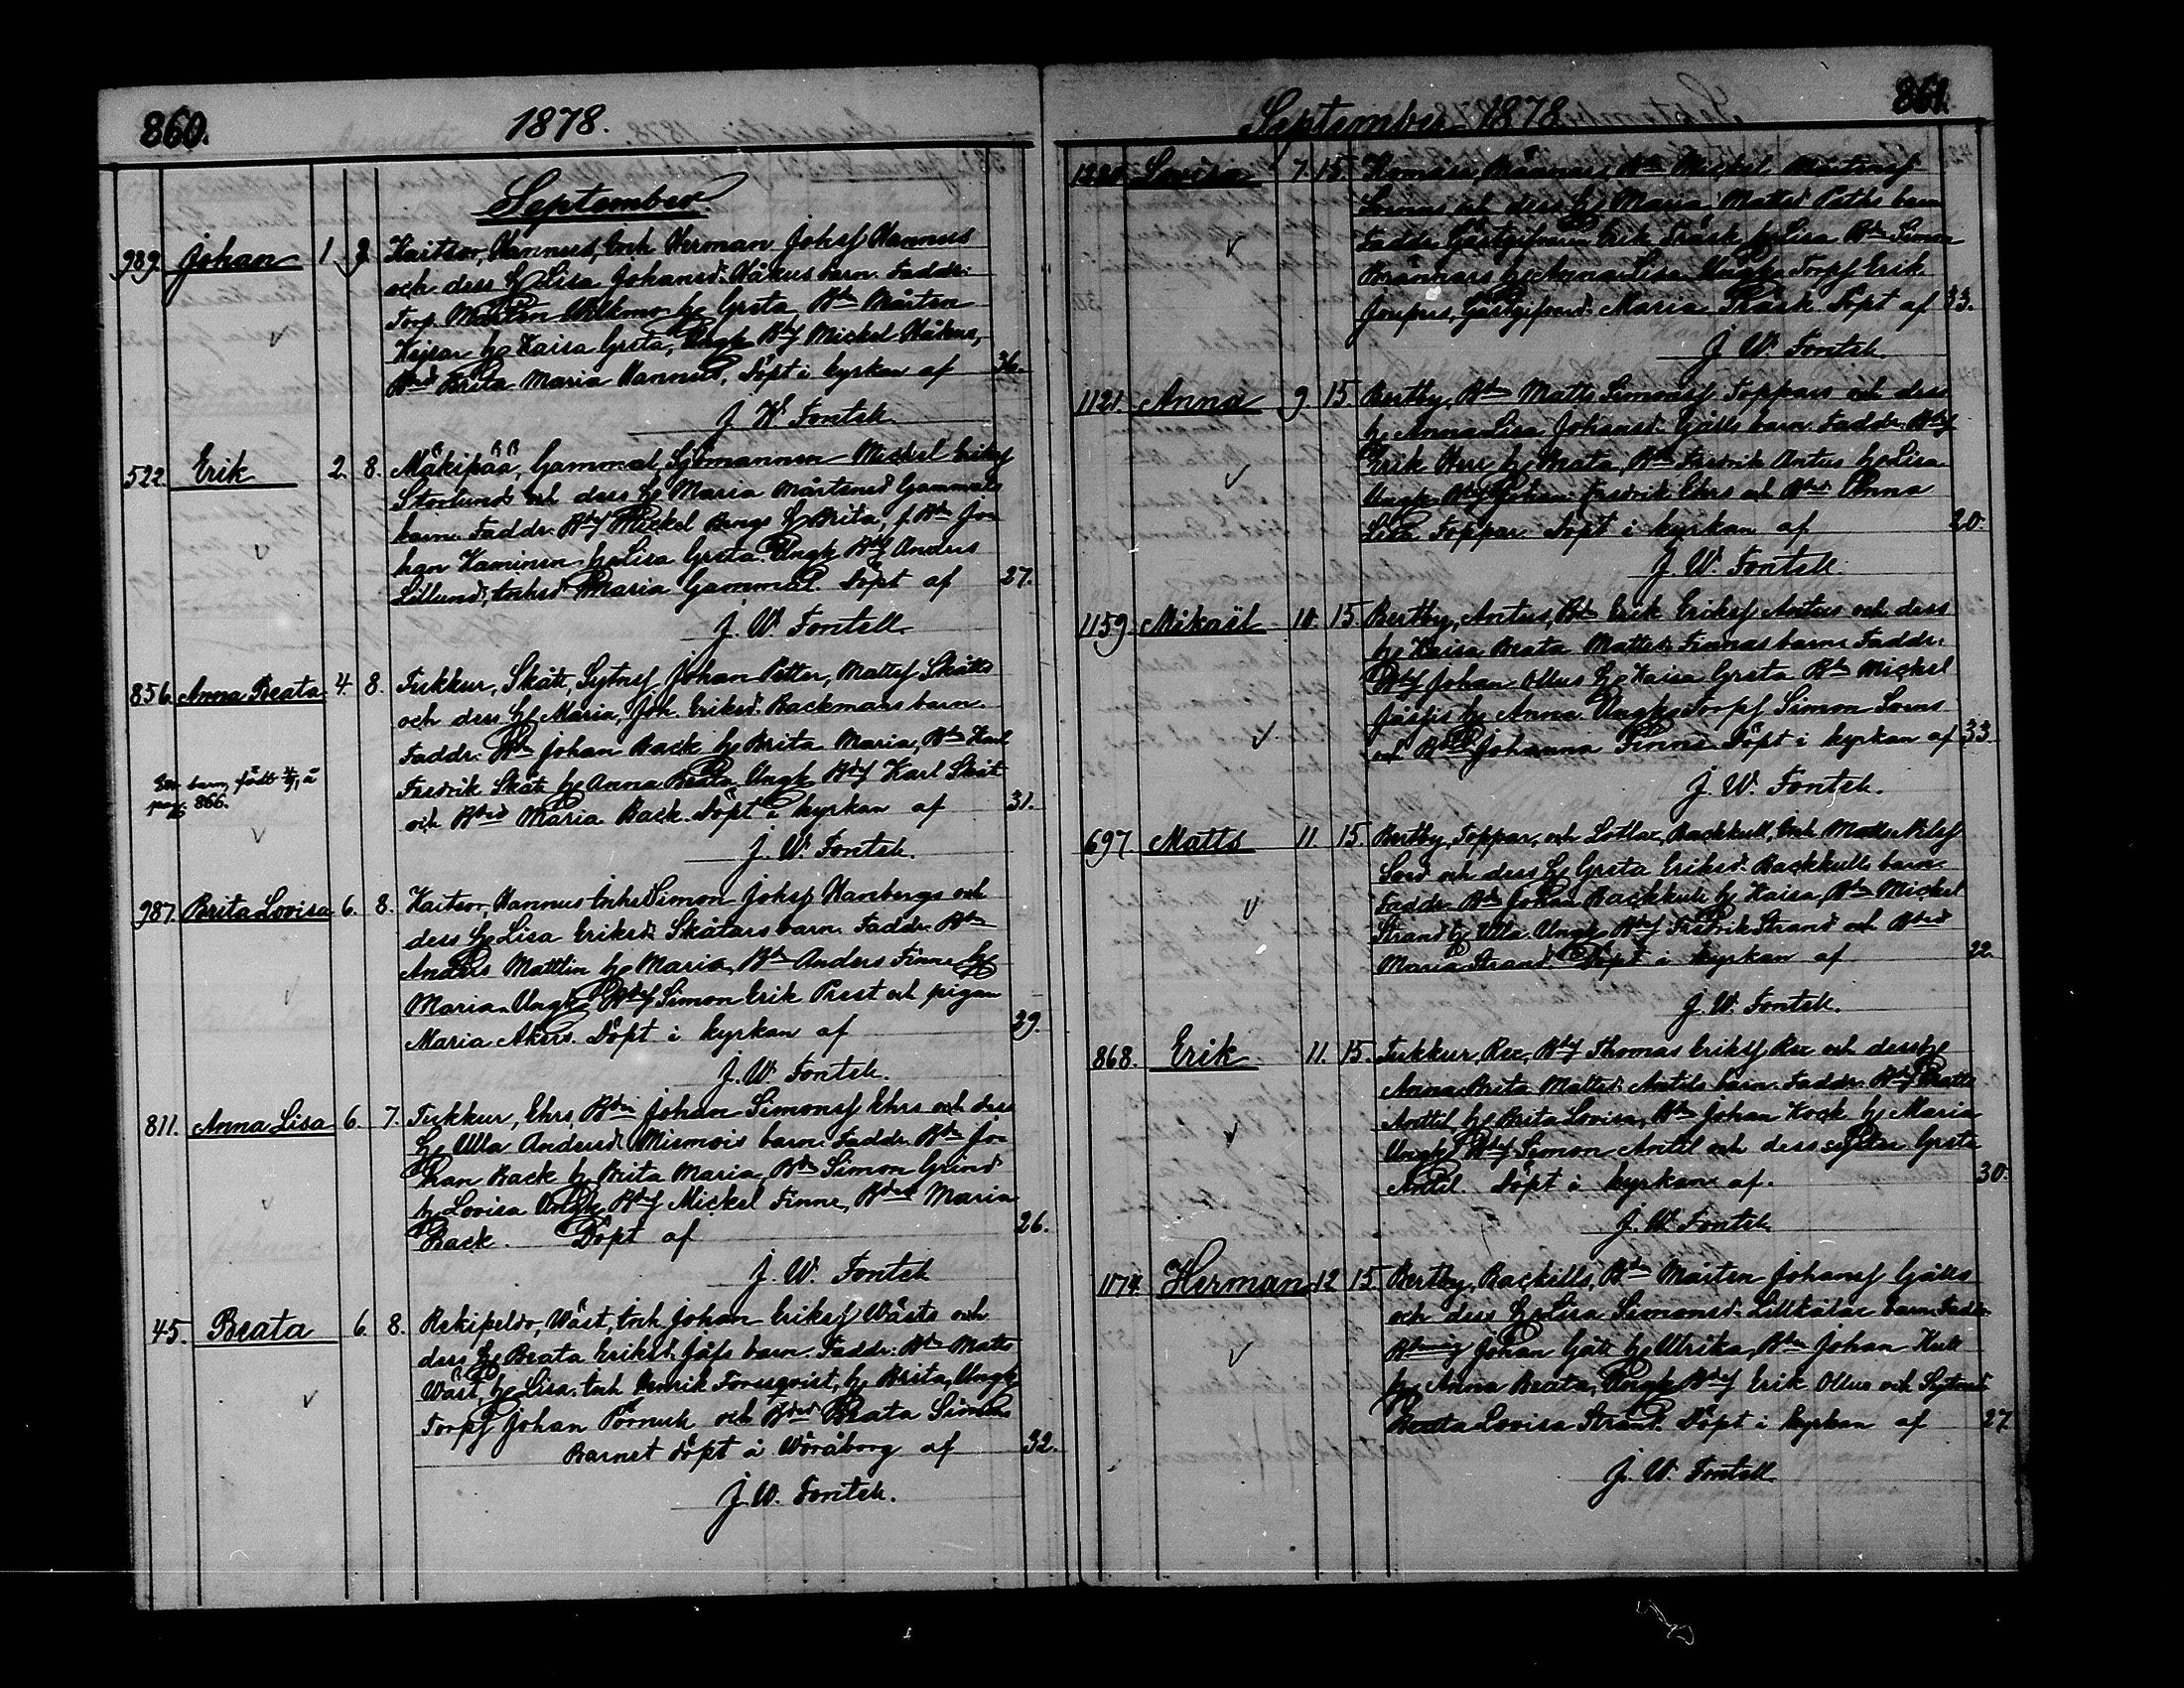 860.
1878.
September
989. Johan 1. 8. Kaitsor, Hannus, Inh. Herman Johsf Hannus
och dess H. Lisa Johansd. Håkus barn. Faddr:
Torp. Mårten Wilkmo h. Greta, Bdn Mårten
Kejsar h. Kaisa Greta, Yngl. Bdsf Mickel Håkus,
Bdsd Brita Maria Hannus, Döpt i kyrkan af 36.
J. W. Fontell.
522. Erik 2. 8. Mäkipää, Gammal, Sytmannen Mickel Eriksf
Storlunds och dess h. Maria Mårtensd Gammals
barn. Faddr. Bdsf Mickel Bengs h. Brita, f. Bdn Jo-
han Kaminen h. Lisa Greta. Yngl. Bdsf Anders
Lillund, Inhsd Maria Gammal. Döpt af 27.
J. W. Fontell.
856. Anna Beata 4. 8. Tukkur, Skått, Sytmsf Johan Petter, Mattsf Skåtts
och dess h. Maria, Joh. Eriksd. Backmans barn.
Faddr: Bdn Johan Back h. Brita Maria, Bdn Karl
Fredrik Skått h. Anna Beata Yngl. Bdsf Karl Skåt
och Bdsd Maria Back. Döpt i kyrkan af 31.
Ett barn, född å
pag. 866.
J. W. Fontell.
987. Brita Lovisa 6. 8. Kaitsor, Hannus Inhes Simon Johsf Hanbergs och
dess h. Lisa Eriksd. Skåtars barn. Faddr. Bdn
Anders Mattlin h. Maria, Bdn Anders Finne h.
Maria. Yngl. Bdsf Simon Erik Prest och pigan
Maria Akers. Döpt i kyrkan af 29.
J. W. Fontell.
811. Anna Lisa 6. 7. Tukkur, Ehrs, Bdn Johan Simonsf Ehrs och dess
h. Ulla Andersd. Mismois barn. Faddr. Bdn Jo-
han Back h. Brita Maria, Bdn Simon Grind
h. Lovisa Yngl. Bdsf Mickel Finne, Bdsd Maria
Back. Döpt af 26.
J. W. Fontell
45. Beata 6. 8. Rekipeldo, Wäst, Inh. Johan Eriksf Wästs och
dess h. Beata Eriksd. Jåfs barn. Faddr: Bdn Matts
Wäst, h. Lisa, Inh Henrik Forssqvist, h. Brita, Yngl.
Torpsf Johan Pörnull och Bdsd Beata Simons
Barnet döpt å Wöråborg af 32.
J. W. Fontell.
861.
September 1878
Lovisa 7. 15. Komåssi, Brännars, Bdn Mickel Mårtensf
och dess h. Maria Mattsd Paths barn
Faddr. Gästgifvaren Erik Träsk h. Lisa Bdn Simon
Brännars h. Anna Lisa Yngl. Torpsf Erik
Joupus, Gästgifvared. Maria Träsk. Döpt af 33.
J. W. Fontell.
1121. Anna 9. 15. Bertby, Bdn Matts Simonsf Toppars och dess
h. Anna Lisa Johansd. Gjälls barn. Faddr. Bdsf
Erik Herr h. Beata, Bdn Fredrik Antus h. Lisa
Yngl. Bdsf Johan Fredrik Ehrs och Bdsd Anna
Lisa Toppar. Döpt i kyrkan af 20.
J. W. Fontell.
1159. Mikaël 10. 15. Bertby, Antus, Bdn Erik Eriksf Antus och dess
h. Kaisa Beata Mattsd. Finnas barn. Faddr:
Bdsf Johan Ollus h. Kaisa Greta Bdn Mickel
h. Anna. Yngl. Torpsf Simon Svens
och Bdsd Johanna Finne. Döpt i kyrkan af 33.
J. W. Fontell.
697. Matts 11. 15. Bertby, Toppar, och Lotlax, Backkull, Inh
Sved och dess h. Greta Eriksd. Backkulls barn.
Faddr. Bdn Johan Backkull h. Kaisa, Bdn Mickel
Strand h. Ulla. Yngl. Bdsf Fredrik Strand och Bdsd
Maria Strand. Döpt i kyrkan af 22.
J. W. Fontell.
868. Erik 11. 15. Tukkur, Rex, Bdsf Thomas Eriksf Rex och dess h.
Anna Brita Mattsd. Antils barn. Faddr. Bdsf Matts
Anttil, h. Brita Lovisa, Bdn Johan Kock h. Maria
Yngl. Bdsf Simon Antil och dess syster Greta
Antil. Döpt i kyrkan af. 30.
J. W. Fontell.
1174. Herman 12 15. Bertby, Backills, Bdn Mårten Johansf Gjälls
och dess h. Lisa Simonsd. Lillkålar barn. Faddr.
Johan Gjäll h. Ulrika, Bdn Johan Kull
h. Anna Beata, Yngl. Bdsf Erik Ollus och Sytmsd.
Beata Lovisa Strand. Döpt i kyrkan af 27.
J. W. Fontell